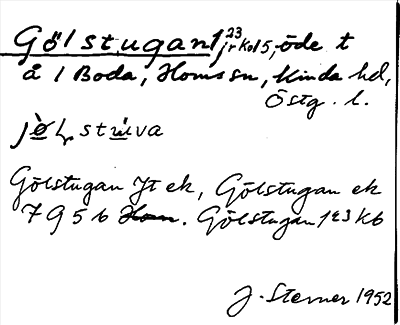 Gölstugan 1 23 jrko15, öde t
å 1 Boda, Horns sn, Kinda hd,
Östg. l.
jö̀ɫstúva
Gölstugan Jt ek, Gölstugan ek
7956 Horn. Gölstugan 1 23 kb
J. Sterner 1952